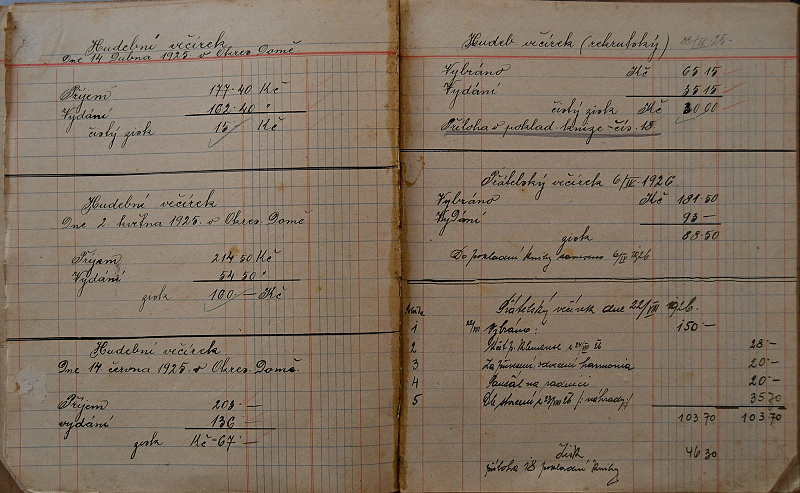 Hudební věčírek
Dne 14 Dubna 1925 v Okres. Domě.
Příjem 177·40 Kč
Vydání 162·40 "
čistý zisk 15 Kč
Hudební večírek
Dne 2 května 1925. v Okres. Domě
Příjem 214 50 Kč
Vydání 54 50 "
zisk 160·— Kč
Hudební večírek
Dne 14 června 1925. v Okres. Domě.
Příjem 203·—
vydání 136
zisk Kč 67·—
Hudeb večírek (rekrutský)
Vybráno Kč 65 15
Vydání 35 15
čistý zisk Kč 30 00
Příloha v poklad. knize čís. 18.
Přátelský večírek 6/IV. 1926.
Vybráno Kč 181·50
Vydání 93 —
zisk 88·50
Do pokladní knihy 6/IV 1926
Přátelský večírek dne 22/VIII 1926.
1 22/VIII Vybráno: 150 —
2 28·—
3 Za harmonia 20·—
4 Paušál na 20·—
5 35 70
103 70 103 70
Zisk 46 30
příloha 28 pokladní knihy